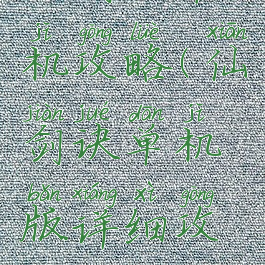 jī gōng lüè xiān
机攻略(仙
jiàn jué dān jī
剑诀单机
bǎn xiáng xì gōng
版详细攻